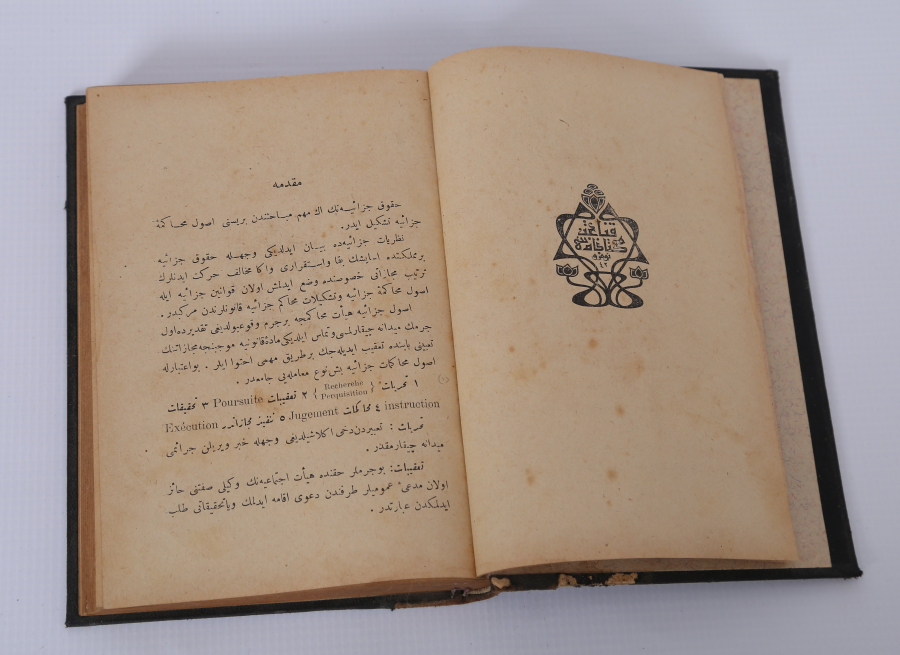 قناعت
كتابخانه سی
مقدمه
حقوق جزائیه‌نك اك مهم مباحثندن بریسنی اصول محاكمهٔ
جزائیه تشكیل ایدر.
نظریات جزائیه‌ده بیان ایدلدیكی وجهله حقوق جزائیه
برمملكتده آسایشك بقا واستقراری واكا مخالف حركت ایدنلرك
ترتیب مجازاتی خصوصنده وضع ایدلمش اولان قوانین جزائیه ایله
اصول محاكمهٔ جزائیه وتشكیلات محاكم جزائیه قانونلرندن مركبدر.
اصول جزائیه هیأت محاكمجه برجرم وقوعبولدیغی تقدیرده اول
جرمك میدانه چیقارلمسی وتماس ایلدیكی مادهٔ قانونیه موجبنجه مجازاتنك
تعیینی بابنده تعقیب ایدیله‌جك برطریق مهمی احتوا ایلر. بواعتبارله
اصول محاكمات جزائیه بش‌نوع معامله‌یی جامعدر.
١ تحریات { Recherche Perquisition } ٢ تعقیبات Poursuite ٣ تحقیقات
instruction ٤ محاكمات Jugement ٥ تنفیذ مجازاتدر Exécution
تحریات : تعبیردن‌دخی اكلاشیلدیغی وجهله خبر ویریلن جرائمی
میدانه چیقارمقدر.
تعقیبات: بوجرملر حقنده هیأت اجتماعیه‌نك وكیلی صفتنی حائز
اولان مدعیٔ عمومیلر طرفندن دعوی اقامه ایدلمك ویاتحقیقاتی طلب
ایدلمكدن عبارتدر.